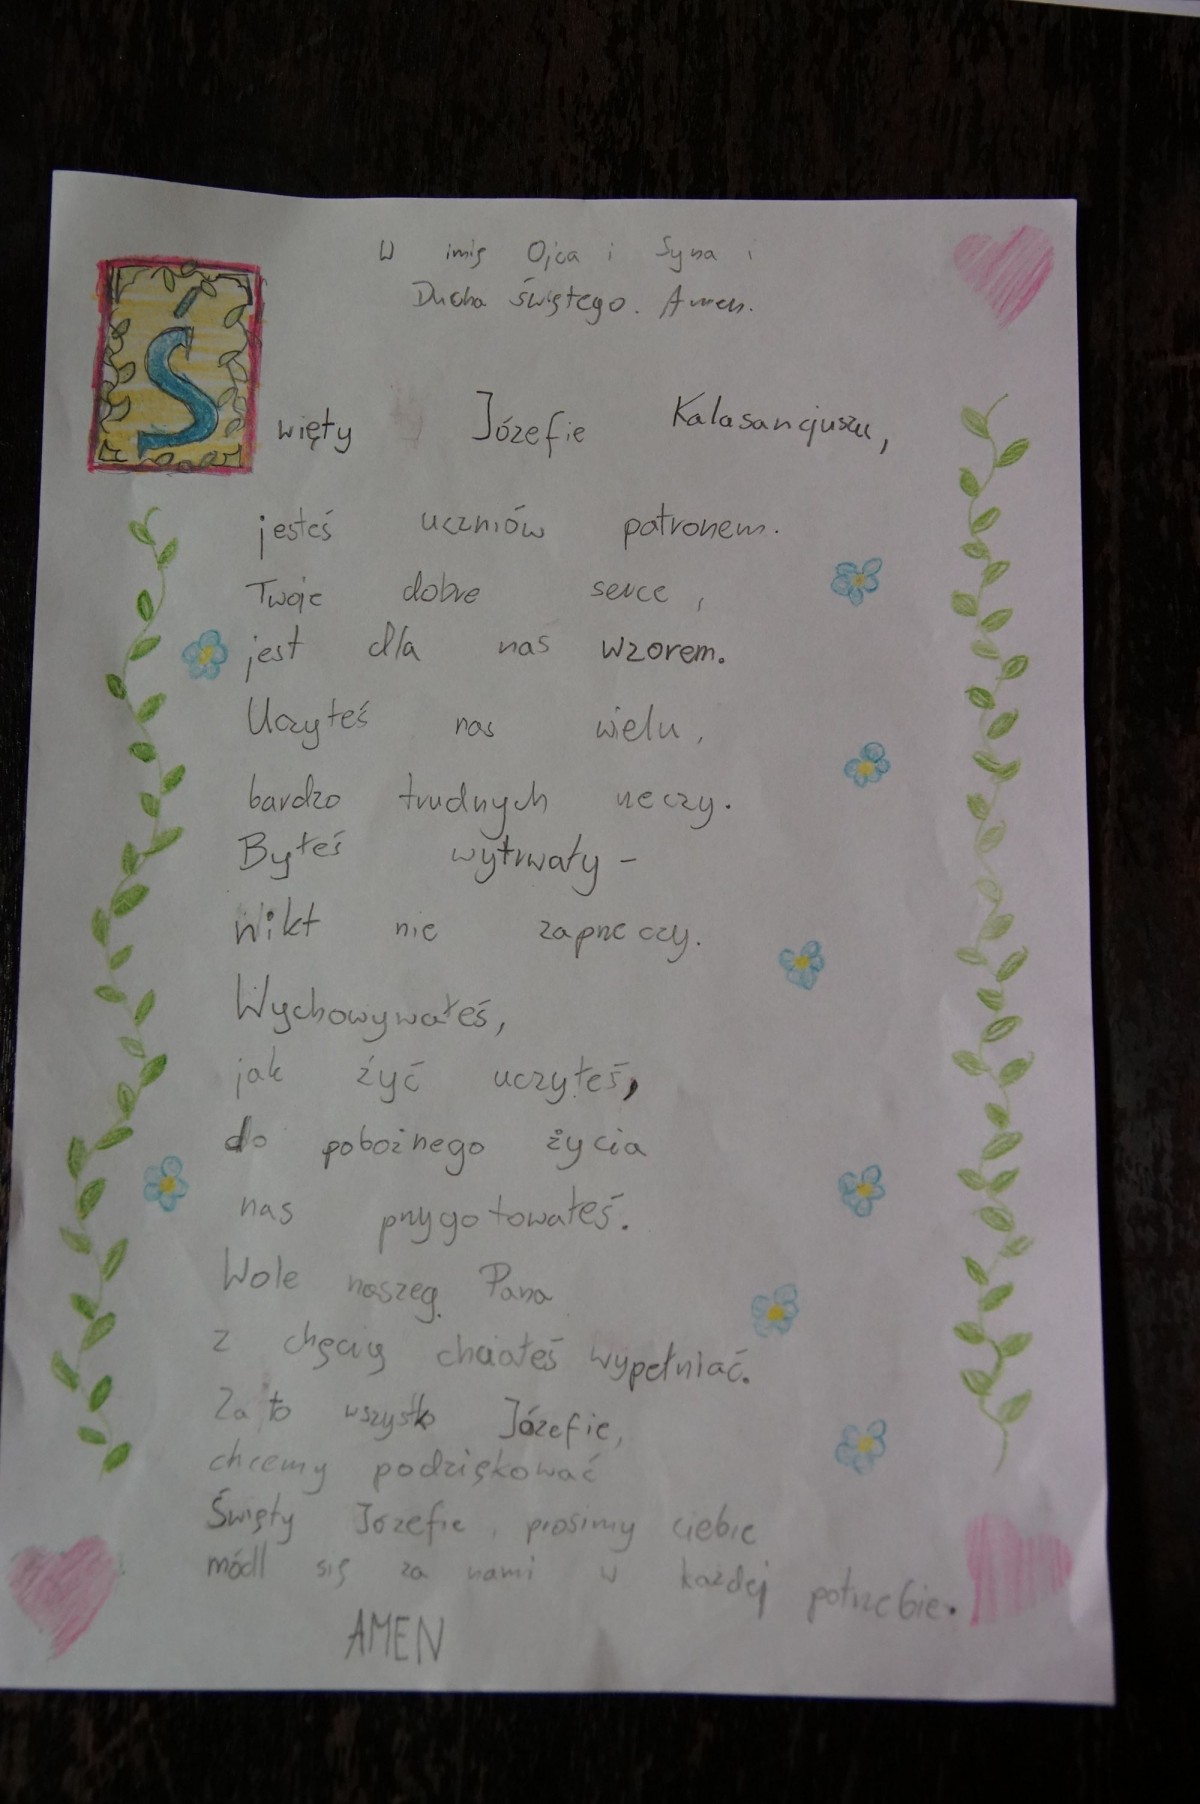 W imię Ojca i Syna i
Ducha świętego. Amen.
Święty Józefie Kalasancjuszu,
jesteś uczniów patronem.
Twoje dobre serce,
jest dla nas wzorem.
Uczyłeś nas wielu,
bardzo trudnych rzeczy.
Byłeś wytrwały –
Nikt nie zaprzeczy.
Wychowywałeś,
jak żyć uczyłeś,
do pobożnego życia
nas przygotowałeś.
Wole naszeg Pana
z chęcią chciałeś wypełniać.
Za to wszystko Józefie,
chcemy podziękować
Święty Józefie, prosimy ciebie
módl się za nami w każdej potrzebie.
AMEN